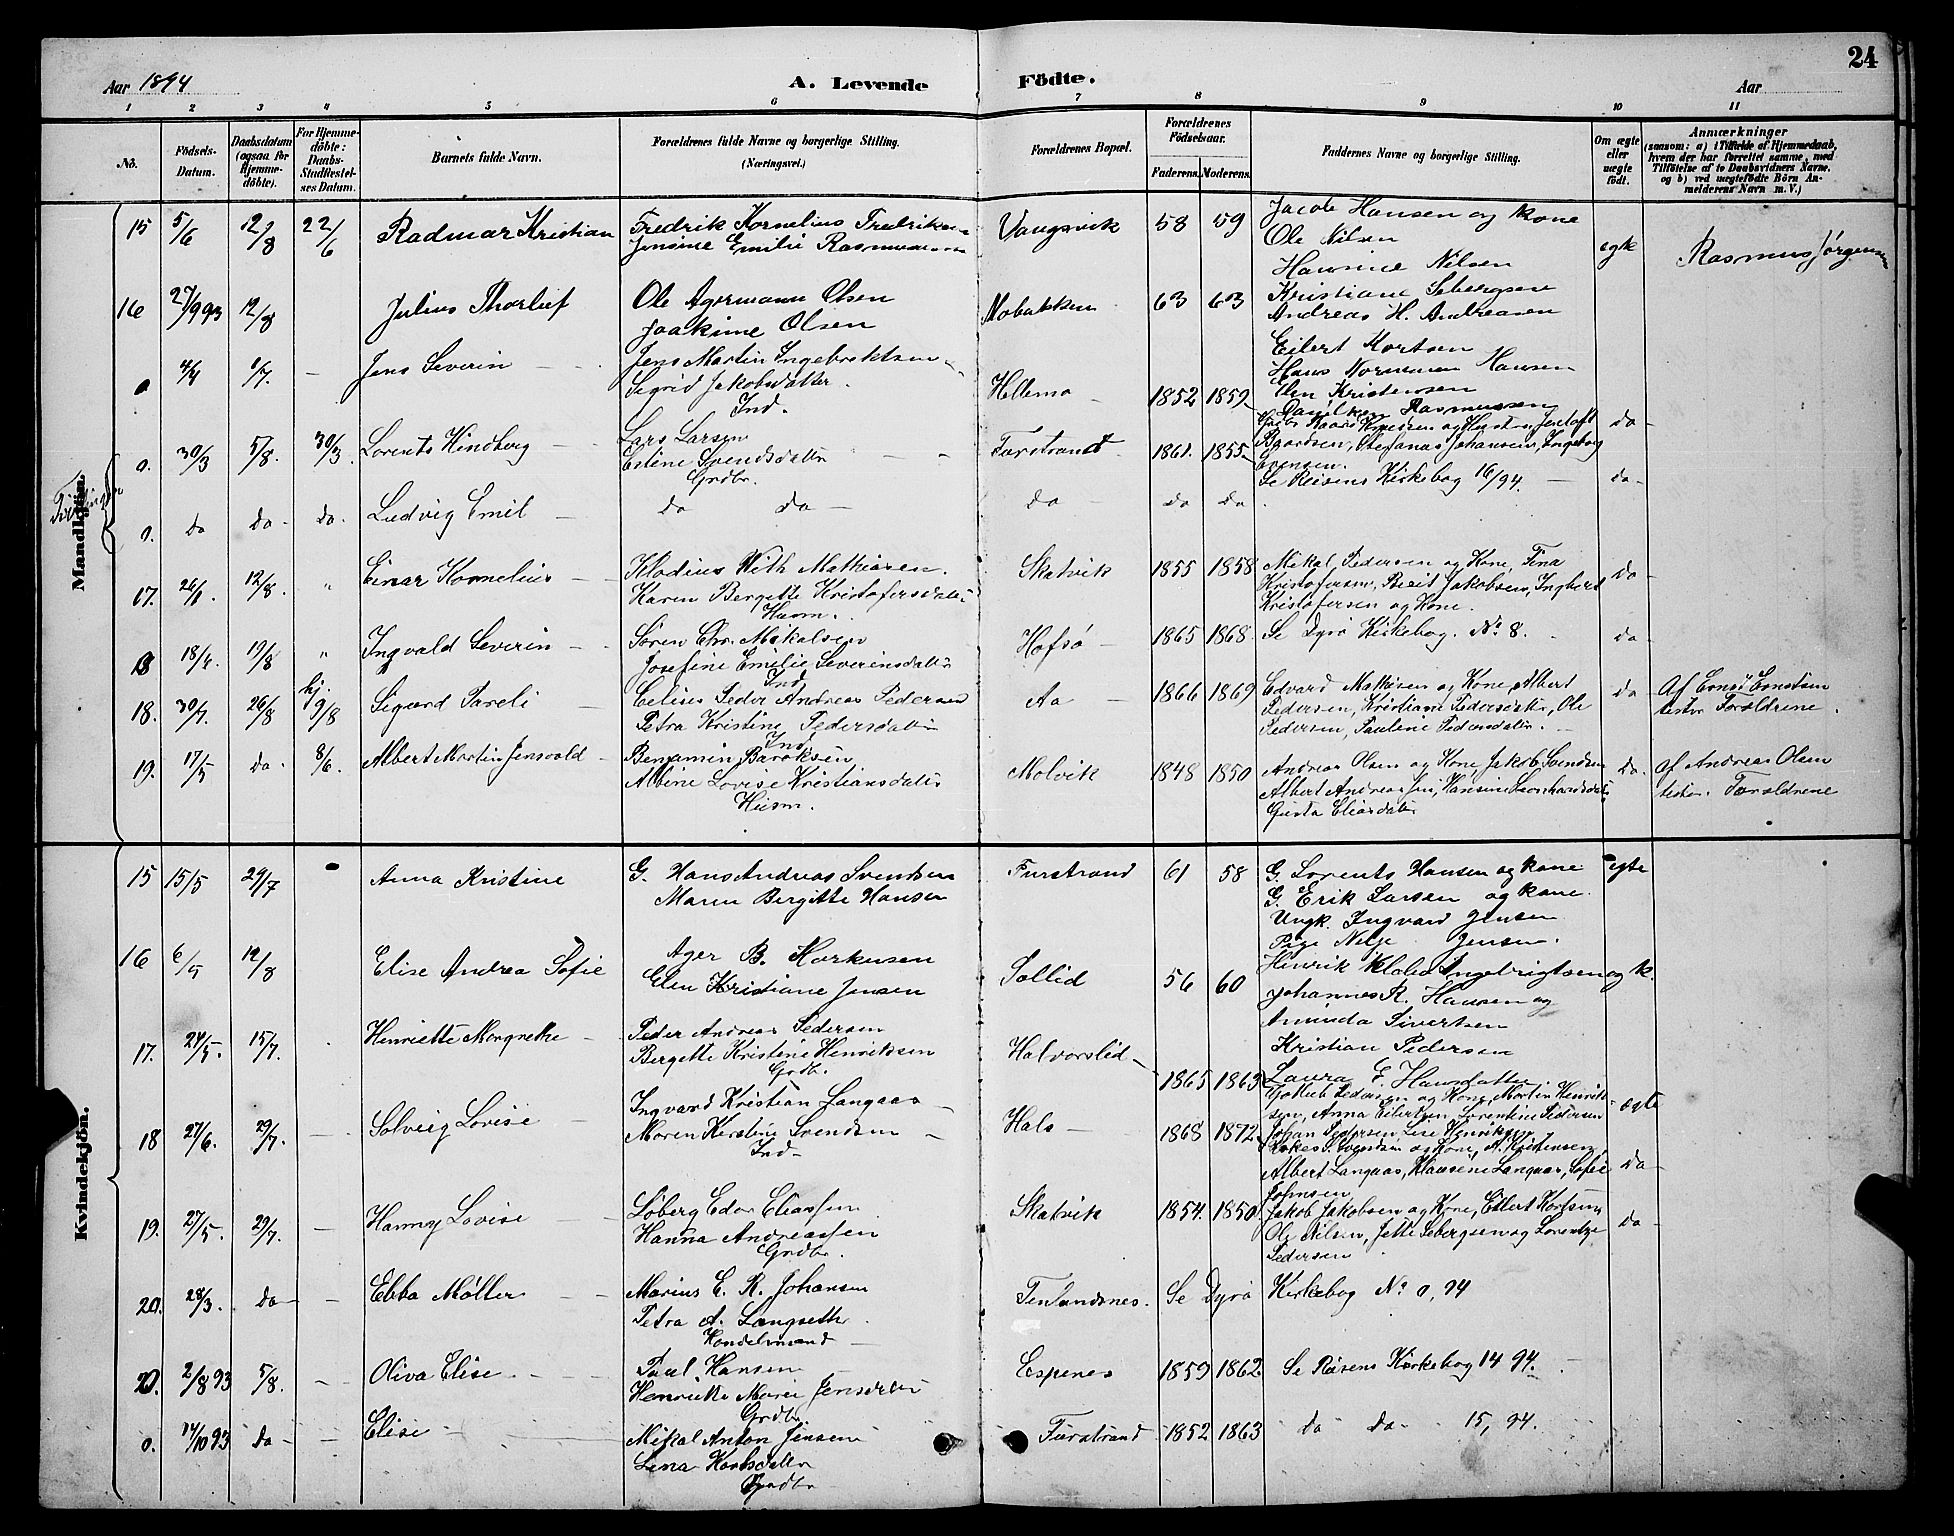 24
Aar 1894
A. Levende Födte.
Aar
1 2 3 4 5 6 7 8 9 10 11
No. Födsels-Datum. Daabsdatum (ogsaa for Hjemme-döbte). For Hjemme-döbte: Daabs-Stadfæstel-ses Datum. Barnets fulde Navn. Forældrenes fulde Navne og borgerlige Stilling. (Næringsvei.) Forældrenes Bopæl. Forældrenes Födselsaar. Faderens. Moderens. Faddernes Navne og borgerlige Stilling. Om ægte eller uægte födt. Anmærkninger (saasom: a) i Tilfælde af Hjemmedaab, hvem der har forrettet samme, med Tilföielse af to Daabsvidners Navne, og b) ved uægtefödte Börn An-melderens Navn m. V.)
Mandkjön.
15 5/6 12/8 22/6 Radmar Kristian Fredrik Kornelius Fredriksen Vangsvik 58 59 Jacob Hansen og kone
Jensine Emilie Rasmussen Ole Nilsen egte Rasmus Jørgensen
Hansine Nilsen
16 27/9 93 12/8 Julius Thorleif Ole Agermann Olsen Mobakken 63 63 Kristiane Sebergsen
Joakime Olsen Andreas H. Andreasen
Eilert Kortsen
0 4/4 1/7 - Jens Severin Jens Martin Ingebrektsen Hans Normann Hansen
Sigrid Jakobsdatter Hellemo 1852 1859 Elen Kristensen
Ind. Rasmussen do
0. 30/3 5/8. 30/3. Lorents Kindberg Lars Larsen Furstrand 1861. 1855 Baardsen, Johansen, Ingeborg
Eriline Svendsdatter Evensen.
Grdbr. Se Reisens Kirkebog 16/94. do
0. do do do. Ludvig Emil do do do do do
17. 26/1. 12/8. " Einar Kornelius Klodius With Mathiasen. Skatvik 1855 1858 Mikal Pedersen og Kone, Tina do
Karen Bergitte Kristofersdatter Kristofersen, Berit Jakobsen, Ingbert
Husm. Kristofersen og Kone.
0 18/4. 19/8 " Ingvald Severin Søren Chr. Mikalsen Hofsø 1865 1868. Se Dyrø Kirkebog. No. 8. do
Josefine Emilie Severinsdatter
Ind
18. 30/7. 26/8 hj. 19/8 Sigurd Pareli Celius Peder Andreas Pedersen Aa 1866 1869 Edvard Mathisen og Kone, Albert do Af Ernst Enoksen
Petra Kristine Pedersdatter Pedersen, Kristiane Pedersdatter, Ole tester Forældrene.
Ind Pedersen, Pauline Pedersdatter.
19. 17/5 do. 8/6. Albert Martin Jensvald Benjamin Baroksen Molvik 1848 1850 Andreas Olsen og Kone, Jakob Svendsen do. Af Andreas Olsen
Albine Lovise Kristiansdatter Albert Andreassen, Hansine Leonhardsdatter tester. Forældrene
Husm. Gusta Eliasdatter
Kvindekjön.
15 15/5 29/7 Anna Kristine G. Hans Andreas Svendsen Furstrand 61 58 G. Lorents Hansen og kone egte
Maren Bergitte Hansen G. Erik Larsen og kone.
Ungk. Ingvard Jensen
Pige Jensen.
16 6/5 12/8 Elise Andrea Sofie Ager B. Markusen Sollid 56 60 Henrik Ingebrigtsen og k.
Elen Kristiane Jensen Johannes R. Hansen og
Aminda Sivertsen
17. 24/5. 15/7. Henriette Margrethe Peder Andreas Pedersen Kristian Pedersen
Bergette Kristine Henriksen Halvorslid 1865 1863 Laura E. Hansdatter
Grdbr. Jakob Pedersen og Kone, Martin Henrik- egte
18 27/6. 29/7. Solveig Lovise Ingvard Kristian Langaas Hals 1868 1872 sen, Anna Eilertsen, Lorentine Pedersen
Maren Kirstine Svendsen Johan Pedersen, Lise Henriksen
Ind Svendsen og Kone, A. Kristensen,
Albert Langaas, Klausine Langaas, Sofie do
Johnsen
19. 27/5. 29/7. Hanny Lovise Søberg Edor Eliassen Skatvik 1854. 1850. Jakob Jakobsen og Kone, Eilert Kortsen, do
Hanna Andreassen Ole Nilsen, Jette Sebergsen og Lorentze
Grdbr. Pedersen
20. 28/3. do Ebba Møller Marius E. R. Johansen Finlandsnes. Se Dyrø Kirkebog No 0, 94
Petra A. Langseth
Handelsmand
20. 2/8 93 5/8. Oliva Elise Paul Hansen Espenes 1859 1862 Se Reisens Kirkebog 14 94.
Henrikke Marie Jensdatter
Grdbr
0. 14/10 93 do Elise Mikal Anton Jensen Furstrand 1852 1863 do do 15, 94.
Lina Kortsdatter
Grdbr